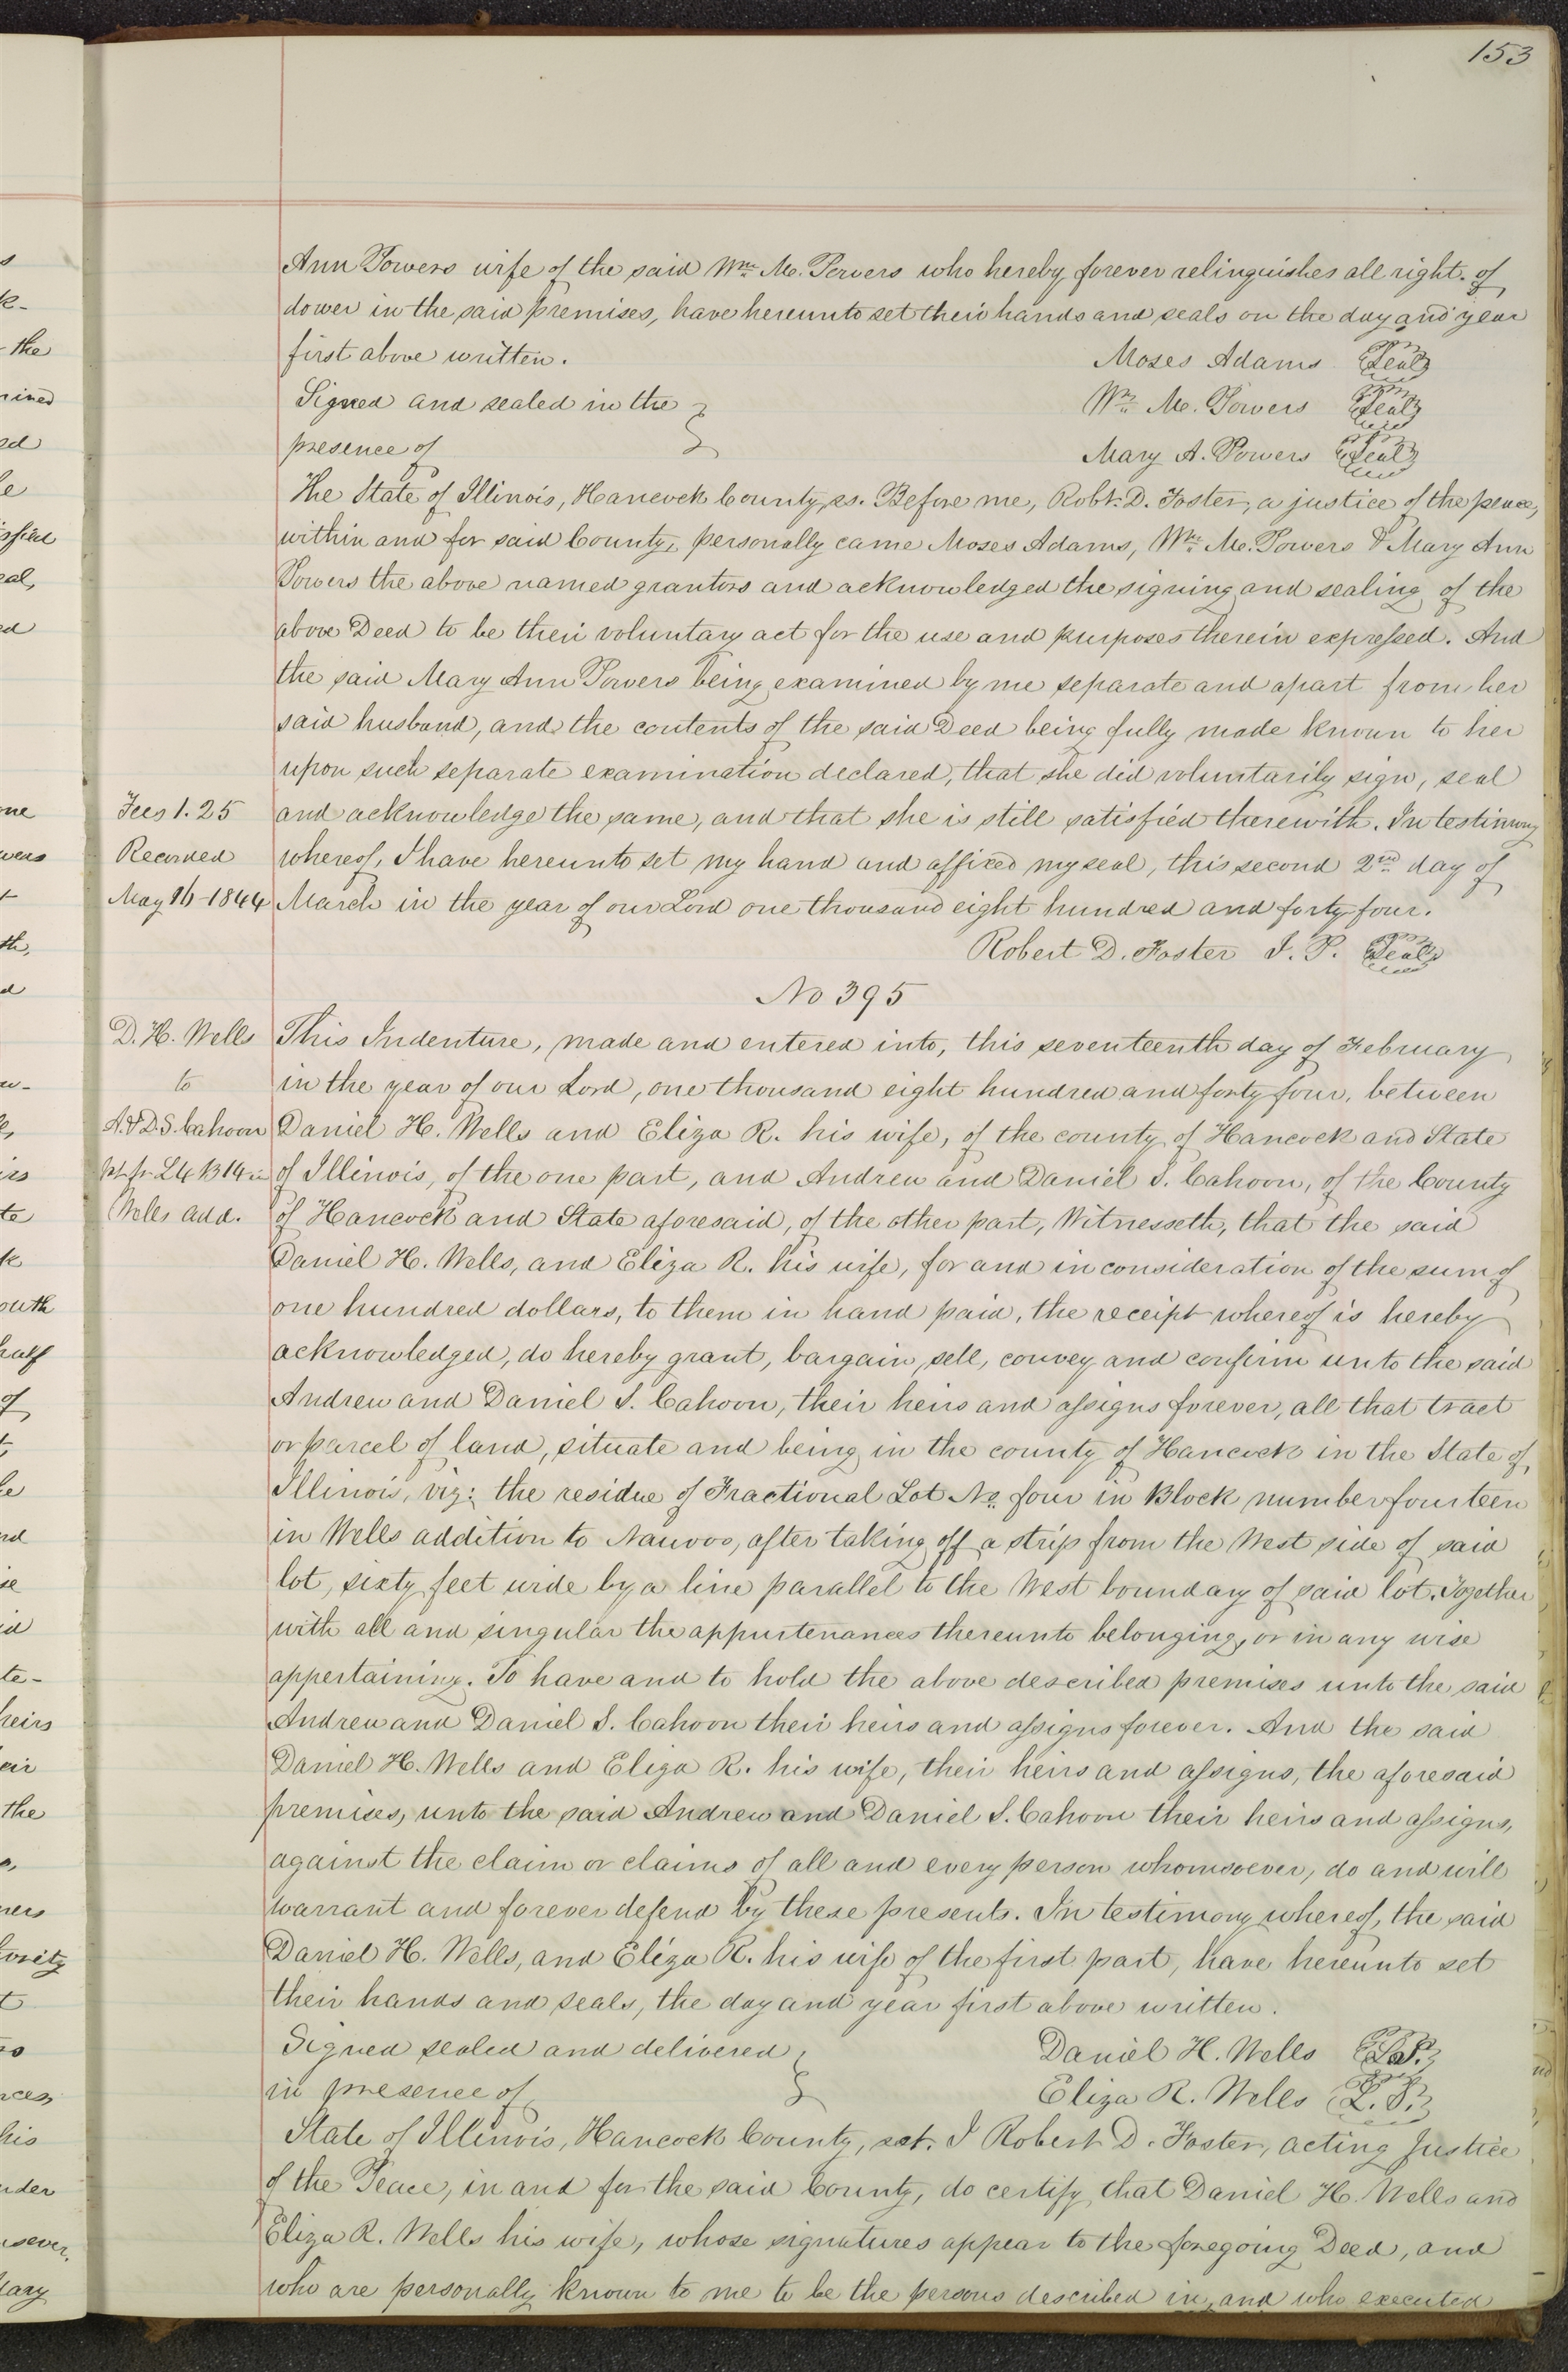 153
Ann Powers wife of the said Wm. M. Powers who hereby forever relinquishes all right of
dower in the said premises, have hereunto set their hands and seals on the day and year
first above written. Moses Adams Seal
Signed and sealed in the Wm. M. Powers Seal
presence of Mary A. Powers Seal
The State of Illinois, Hancock County, ss. Before me, Robt. D. Foster, a justice of the peace,
within and for said County, personally came Moses Adams, Wm. M. Powers & Mary Ann
Powers the above named grantors and acknowledged the signing and sealing of the
above Deed to be their voluntary act for the use and purposes therein expressed. And
the said Mary Ann Powers being examined by me separate and apart from her
said husband, and the contents of the said Deed being fully made known to her
upon such separate examination declared, that she did voluntarily sign, seal
Fees 1.25 and acknowledge the same, and that she is still satisfied therewith. In testimony
Recorded whereof, I have hereunto set my hand and affixed my seal, this second 2nd day of
May 16 1844 March in the year of our Lord one thousand eight hundred and forty four.
Robert D. Foster J. P. Seal
No 395
D. H. Wells This Indenture, made and entered into, this seventeenth day of February
to in the year of our Lord, one thousand eight hundred and forty four, between
A. & D. S. Cahoon Daniel H. Wells and Eliza R. his wife, of the county of Hancock and State
pt. fr. L4 B14 in of Illinois, of the one part, and Andrew and Daniel S. Cahoon, of the County
Wells add. of Hancock and State aforesaid, of the other part, Witnesseth, that the said
Daniel H. Wells, and Eliza R. his wife, for and in consideration of the sum of
one hundred dollars, to them in hand paid, the receipt whereof is hereby
acknowledged, do hereby grant, bargain, sell, convey and confirm unto the said
Andrew and Daniel S. Cahoon, their heirs and assigns forever, all that tract
or parcel of land, situate and being in the county of Hancock in the State of
Illinois, viz: the residue of Fractional Lot No. four in Block number fourteen
in Wells addition to Nauvoo, after taking off a strip from the West side of said
lot, sixty feet wide by a line parallel to the West boundary of said lot. Together
with all and singular the appurtenances thereunto belonging, or in any wise
appertaining. To have and to hold the above described premises unto the said
Andrew and Daniel S. Cahoon their heirs and assigns forever. And the said
Daniel H. Wells and Eliza R. his wife, their heirs and assigns, the aforesaid
premises, unto the said Andrew and Daniel S. Cahoon their heirs and assigns,
against the claim or claims of all and every person whomsoever, do and will
warrant and forever defend by these presents. In testimony whereof, the said
Daniel H. Wells, and Eliza R. his wife of the first part, have hereunto set
their hands and seals, the day and year first above written.
Signed sealed and delivered Daniel H. Wells L.S.
in presence of Eliza R. Wells L.S.
State of Illinois, Hancock County, sct. I Robert D. Foster, acting Justice
of the Peace, in and for the said County, do certify that Daniel H. Wells and
Eliza R. Wells his wife, whose signatures appear to the foregoing Deed, and
who are personally known to me to be the persons described in, and who executed